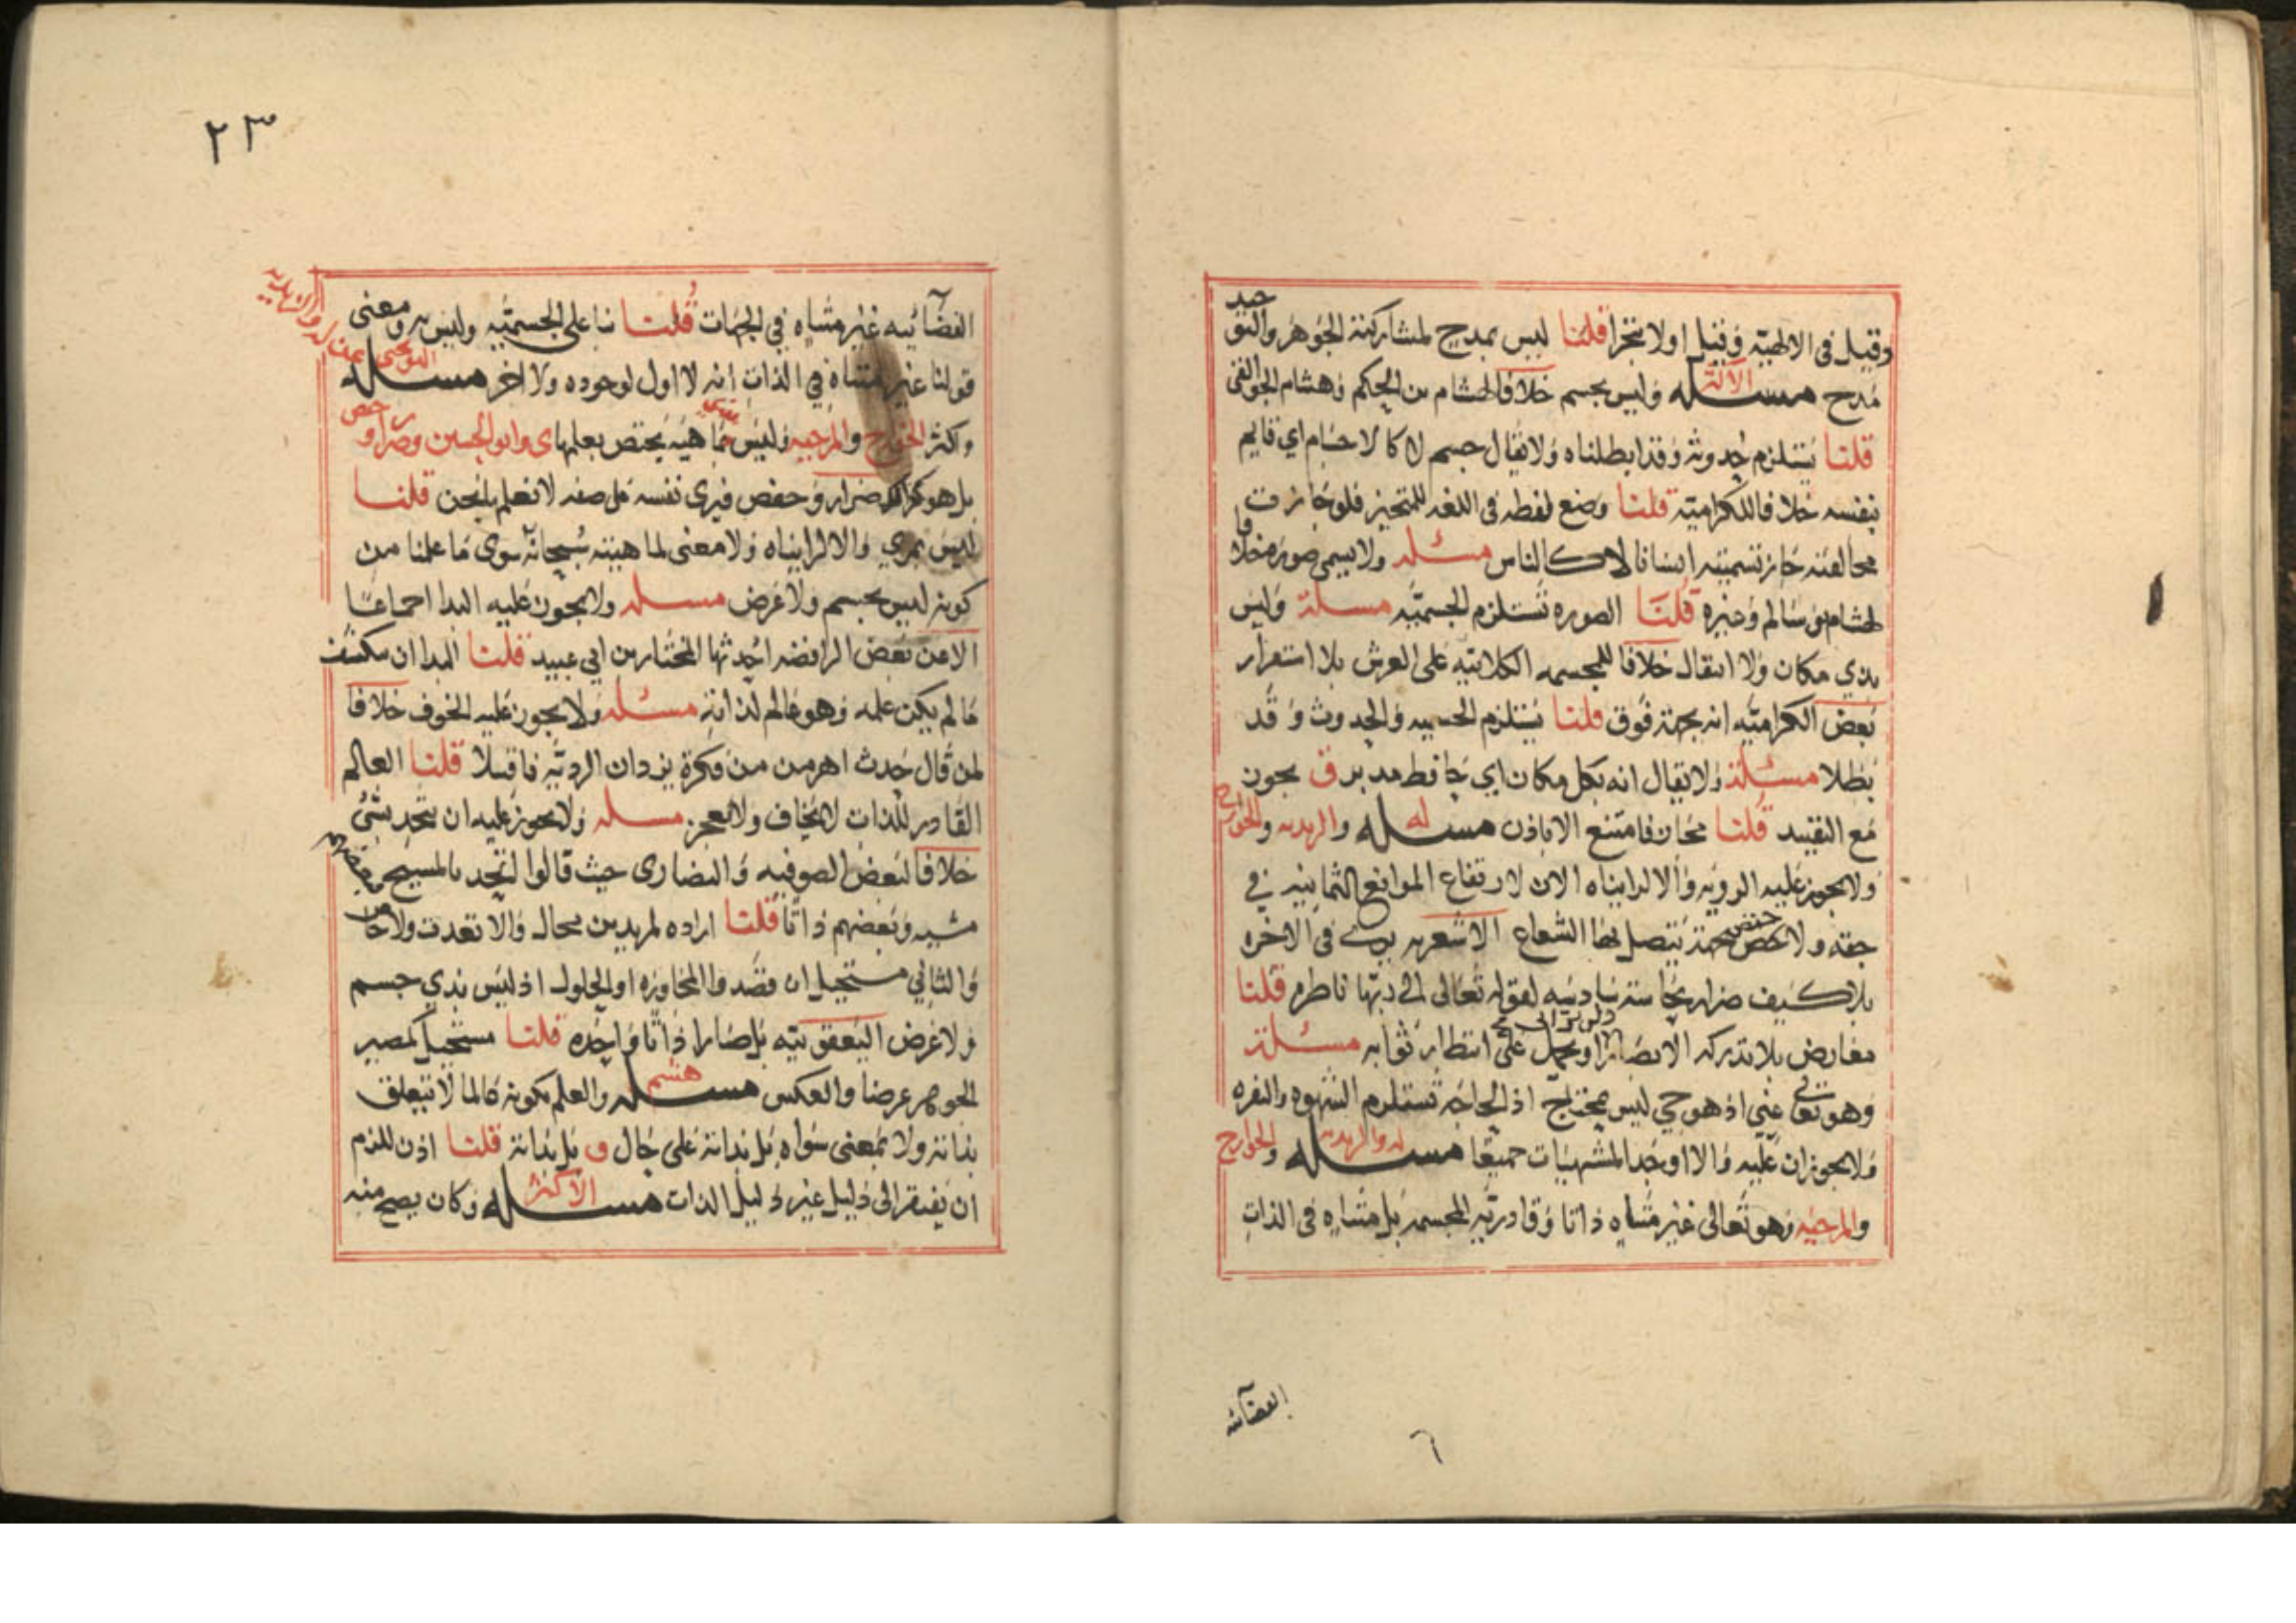 وقيل فى الالهيّة وقيل اولا يتجزا قلنا ليس بمدح لمشاركته الجوهر والتوحيد
مدح مسئله الاكثر وليس بجسم خلافا لهشام بن الحكم وهشام الجواليقى
قلنا يستلزم حدوثه وقد ابطلناه ولا يقال جسم لا كالاجسام اي قايم
بنفسه خلافا للكرامية قلنا وضع لفظه فى اللغه للمتحيز فلو جازت
مخالفته جاز تسميته انسانا لا كالناس مسئله ولا يسمى صوره خلافا
لهشام بن سالم وغيره قلنا الصوره تستلزم الجسميّه مسئلة وليس
بذي مكان ولا انتقال خلافا للمجسمه الكلابيّه على العرش بلا استقرار
بعض الكراميّه انه بجهة فوق قلنا يستلزم الجسميه والحدوث وقد
بطلا مسئلة ولا يقال انه بكل مكان اي حافظ مدبر ق يجوز
مع التقييد قلنا مجاز فامتنع الا باذن مسئله له والزيديه والخوارج
ولا يجوز عليه الرويه والا لرايناه الان لارتفاع الموانع الثمانيه في
حقه ولا يتصل بها الشعاع الاشعريه يرى فى الاخره
بلا كيف ضرار بحاسة سادسه لقوله تعالى الى ربها ناظره قلنا
معارض بلا تدركه الابصار او يحمل على انتظار ثوابه مسئلة
وهو تعالى غني اذ هو حي ليس بمحتاج اذ الحاجه تستلزم الشهوه والنفره
ولا يجوزان عليه والا اوجد المشتهيات جميعا مسئله له والزيديه والخوارج
والمرجيه وهو تعالى غير متناه ذاتا وقادريّه المجسمه بل متناه فى الذات
الفضائيه
٦
٢٣
الفضآئيه غير متناه في الجهات قلنا بنا على الجسميّه وليس به ومعنى
قولنا غير متناه في الذات انه لا اول لوجوده ولا اخر مسئله
واكثر الخوارج والمرجيه وليس ماهيه يختص بعلمها وابو الحسين وضرار وحفص
بل هو كذلك ضرار وحفص فيرى نفسه على صفه لا نعلم بل نحن قلنا
ليس بمرئي والا لرايناه ولا معنى لماهيته سبحانه سوى ما علمنا من
كونه ليس بجسم ولا عرض مسئله ولا يجوز عليه البدا اجماعا
الا عن بعض الرافضه احدثها المختار بن ابي عبيد قلنا البدا ان ينكشف
ما لم يكن علمه وهو عالم لذاته مسئله ولا يجوز عليه الخوف خلافا
لمن قال حدث اهرمن من فكرة يزدان الرديّه قلنا العالم
القادر للذات لا يخاف ولا يعجز مسئله ولا يجوز عليه ان يتحد بشئ
خلافا لبعض الصوفيه والنصارى حيث قالوا اتحد بالمسيح
مشيه وبعضهم ذاتا قلنا اراده لمريدين محال والا تعدت
والثاني مستحيل ان قصدوا المجاوره او الحلول اذ ليس بذي جسم
ولا عرض اليعقوبيه بل صارا ذاتا واحده قلنا مستحيل كمصير
الجوهر عرضا والعكس مسئله هشم والعلم بكونه عالما لا يتعلق
بذاته ولا بمعنى سواه بل بذاته على حال و بل بذاته قلنا اذن للزم
ان يفتقر الى دليل غير دليل الذات مسئله الاكثر وكان يصح منه